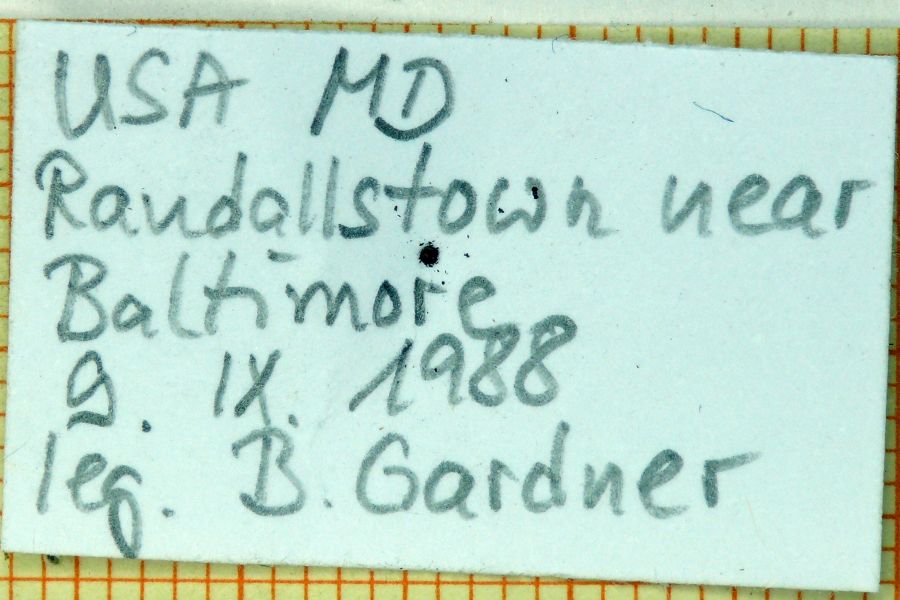 USA MD
Randallstown near
Baltimore
9. IX. 1988
leg. B. Gardner